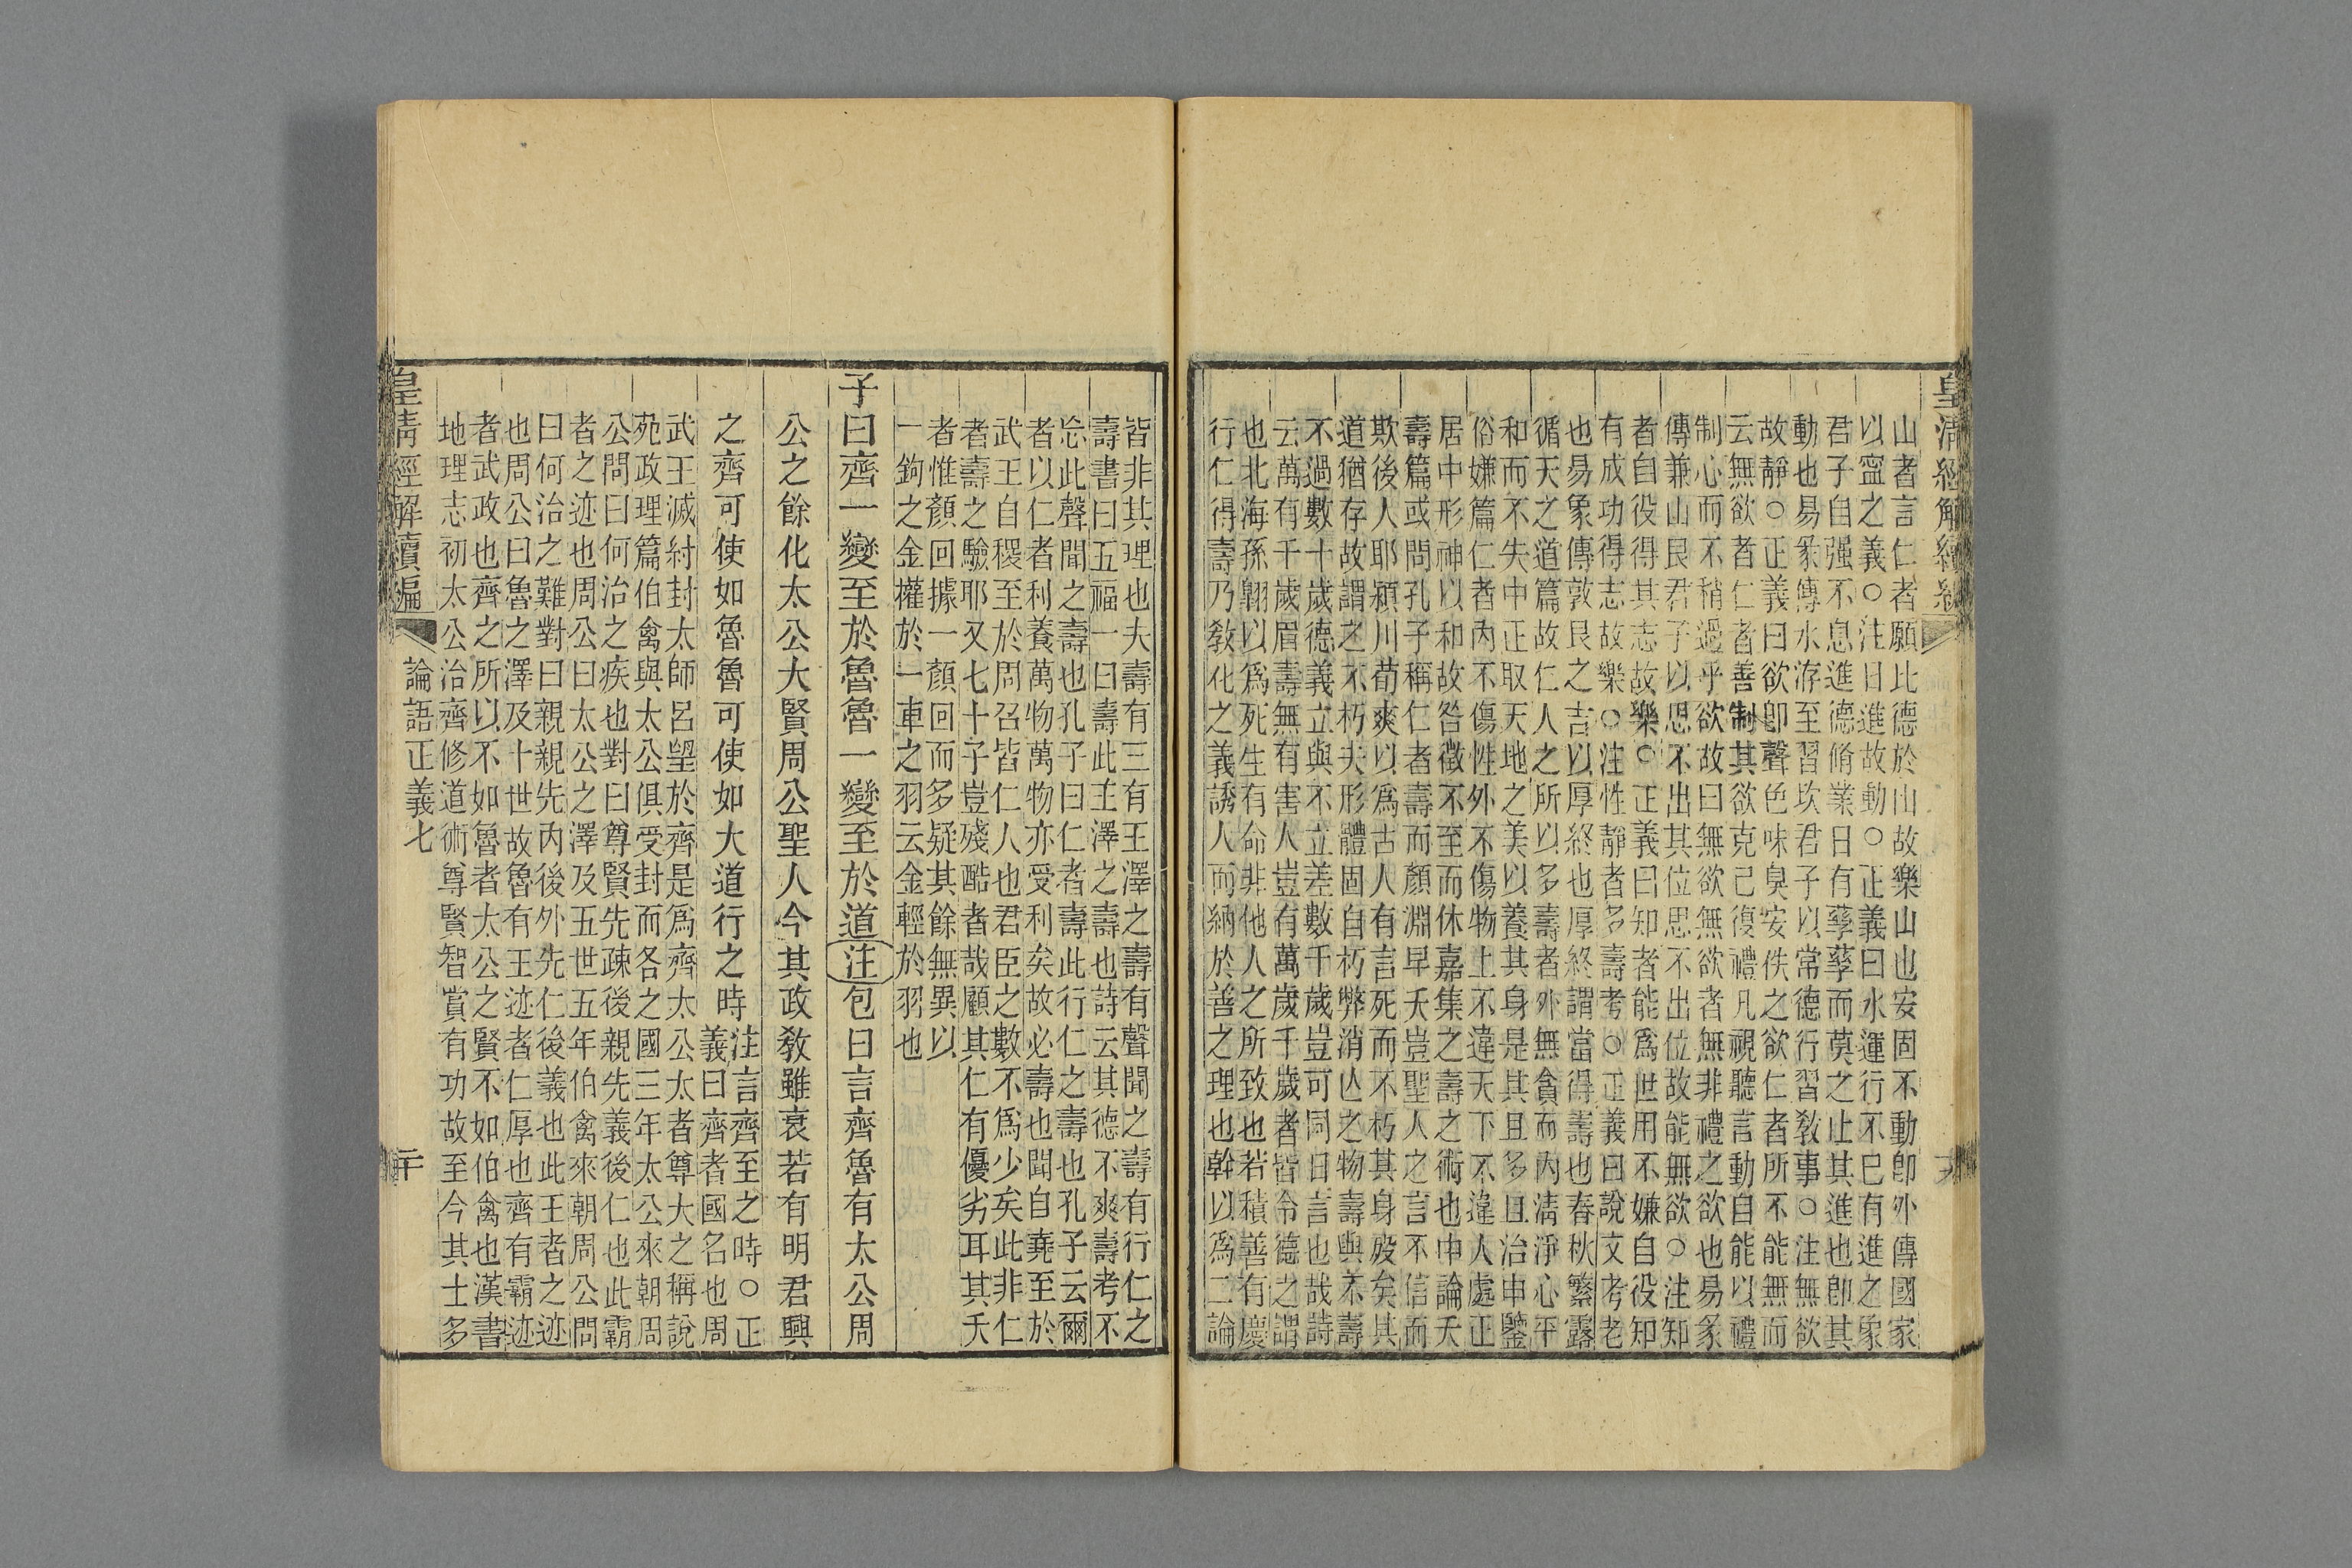 皇清經解續編
山者言仁者願比德於山故樂山也安固不動卽外傳國家
以寍之義○注日進故動○正義曰水運行不已有進之象
君子自强不息進德脩業日有孳孳而莫之止其進也卽其
動也易象傳水洊至習坎君子以常德行習敎事○注無欲
故靜○正義曰欲卽聲色味臭安佚之欲仁者所不能無而
云無欲者仁者善制其欲克己復禮凡視聽言動自能以禮
制心而不稍過乎欲故曰無欲無欲者無非禮之欲也易象
傳兼山艮君子以思不出其位思不出位故能無欲○注知
者自役得其志故樂○正義曰知者能爲世用不嫌自役知
有成功得志故樂○注性靜者多壽考○正義曰說文考老
也易象傳敦艮之吉以厚終也厚終謂當得壽也春秋繁露
循天之道篇故仁人之所以多壽者外無貪而內淸淨心平
和而不失中正取天地之美以養其身是其且多且治申鑒
俗嫌篇仁者內不傷性外不傷物上不違天下不違人處正
居中形神以和故咎徵不至而休嘉集之壽之術也中論夭
壽篇或問孔子稱仁者壽而顏淵早夭豈聖人之言不信而
欺後人耶潁川荀爽以爲古人有言死而不朽其身歿矣其
道猶存故謂之不朽夫形體固自朽弊消亾之物壽與不壽
不過數十歲德義立與不立差數千歲豈可同日言也哉詩
云萬有千歲眉壽無有害人豈有萬歲千歲者皆令德之謂
也北海孫翺以爲死生有命非他人之所致也若積善有慶
行仁得壽乃敎化之義誘人而納於善之理也幹以爲二論
皆非其理也夫壽有三有王澤之壽有聲聞之壽有行仁之
壽書曰五福一曰壽此王澤之壽也詩云其德不爽壽考不
忘此聲聞之壽也孔子曰仁者壽此行仁之壽也孔子云爾
者以仁者利養萬物萬物亦受利矣故必壽也聞自堯至於
武王自稷至於周召皆仁人也君臣之數不爲少矣此非仁
者壽之驗耶又七十子豈殘酷者哉顧其仁有優劣耳其夭
者惟顏回據一顏回而多疑其餘無異以
一鉤之金權於一車之羽云金輕於羽也
子曰齊一變至於魯魯一變至於道注包曰言齊魯有太公周
公之餘化太公大賢周公聖人今其政敎雖衰若有明君興
之齊可使如魯魯可使如大道行之時注言齊至之時○正
義曰齊者國名也周
武王滅紂封太師呂望於齊是爲齊太公太者尊大之稱說
苑政理篇伯禽與太公俱受封而各之國三年太公來朝周
公問曰何治之疾也對曰尊賢先疎後親先義後仁也此霸
者之迹也周公曰太公之澤及五世五年伯禽來朝周公問
曰何治之難對曰親親先內後外先仁後義也此王者之迹
也周公曰魯之澤及十世故魯有王迹者仁厚也齊有霸迹
者武政也齊之所以不如魯者太公之賢不如伯禽也漢書
地理志初太公治齊修道術尊賢智賞有功故至今其士多
皇清經解續編 論語正義七 二十